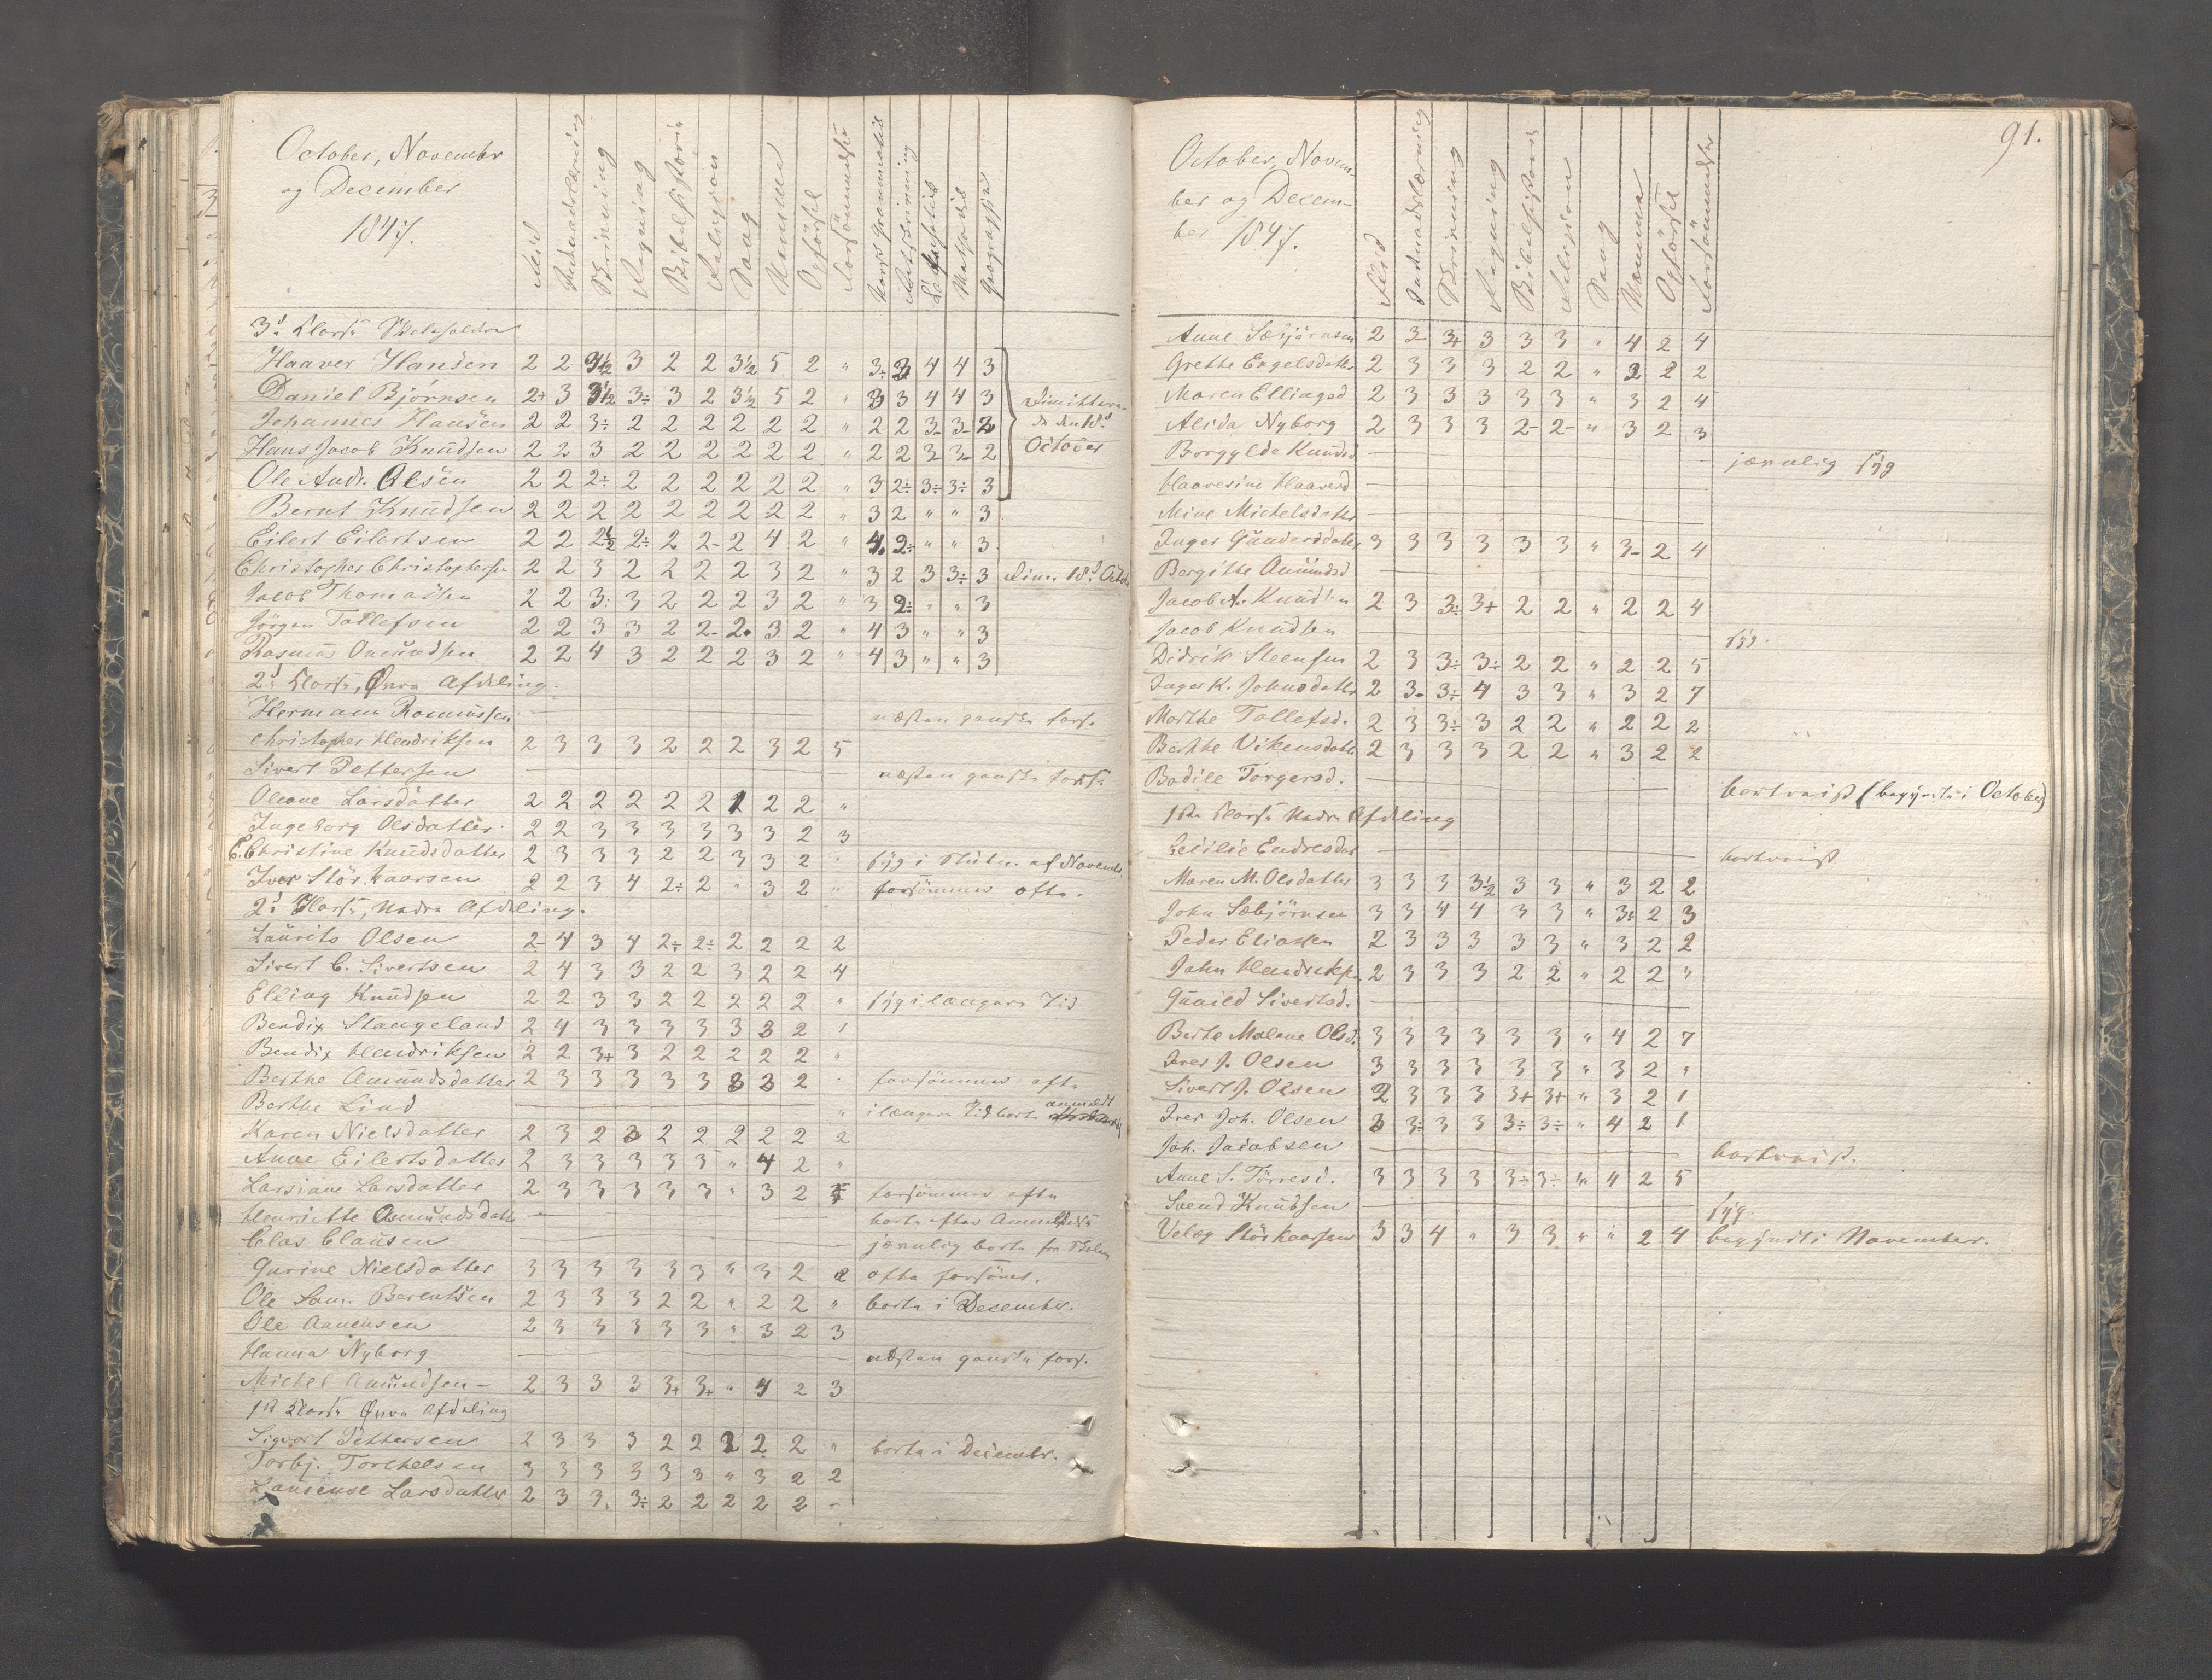 October, Novembr
og December
1847.
Flid
Indenadslæsning
Skrivning
Regning
Bibelhistorie
Religion
Sang
Nemme
Opførsel
Forsømmelser
Norsk Grammatik
Retskrivning
Geographie
3d Klasse
Haaver Hansen 2 2 3½ 3 2 2 3½ 5 2 " 3÷ 3 4 4 3
Daniel Bjørnsen 2+ 3 3½ 3÷ 3 2 3½ 5 2 " 3 3 4 4 3 dimittere-
Johannes Hansen 2 2 3÷ 2 2 2 2 2 2 " 2 2 3- 3- 2 de den 18d
Hans Jacob Knudsen 2 2 3 2 2 2 2 2 2 " 2 2 3- 3- 2 October
Ole Andr. Olsen 2 2 2÷ 2 2 2 2 2 2 " 3 2÷ 3÷ 3÷ 3
Bernt Knudsen 2 2 2 2 2 2 2 2 2 " 3 2 " " 3
Eilert Eilertsen 2 2 2½ 2÷ 2 2- 2 4 2 " 4 2÷ " " 3
Christopher Christophersen 2 2 3 2 2 2 2 3 2 " 3 2 3 3÷ 3 Dim. 18d Octob
Jacob Thomassen 2 2 3÷ 3 2 2 2 3 2 " 3 2÷ " " 3
Jörgen Tollefsen 2 2 3 3 2 2- 2 3 2 " 4 3 " " 3
Rasmus Omundsen 2 2 4 3 2 2 2 3 2 " 4 3 " " 3
2d Klasse, Øvre Afdeling.
Hermann Rasmussen næsten ganske fors.
Christopher Hendriksen 2 3 3 3 2 2 2 3 2 5
Sivert Pettersen næsten ganske fors.
Oleane Larsdatter 2 2 2 2 2 2 1 2 2 "
Ingeborg Olsdatter 2 2 3 3 3 3 3 3 2 3
E. Christine Knudsdatter 2 3 3 3 2 2 3 3 2 " syg i Slutn. af Novembr.
Iver Stör. Kaarsen 2 2 3 4 2÷ 2 " 3 2 " forsömmer ofte.
2d Klasse, Nedre Afdeling.
Laurits Olsen 2- 4 3 4 2÷ 2÷ 2 2 2 2
Sivert C. Sivertsen 2 4 3 3 2 2 3 2 2 4
Elling Knudsen 2 2 3 3 2 2 2 2 2 " syg i længere Tid
Bendix Stangeland 2 4 3 3 3 3 3 3 2 1
Bendix Hendriksen 2 2 3+ 3 2 2 2 2 2 "
Berthe Amundsdatter 2 3 3 3 3 3 3 3 2 " forsömmer ofte
Berthe Lind " i længere Tid borte anmeldt
Karen Nielsdatter 2 3 2 3 2 2 2 2 2 2
Anne Eilertsdatter 2 3 3 3 3 3 " 4 2 "
Larsiane Larsdatter 2 3 3 3 3 3 " 3 2 forsömmer ofte
Henriette Asmundsdatt borte efter Anmeldelse
Clas Clausen jævnlig borte fra Skolen
Gurine Nielsdatter 3 3 3 3 3 3 " 3 2 2 ofte forsömt.
Ole Sam. Berentsen 2 3 3 3 2 2 " 2 2 " borte i Desembr.
Ole Aanensen 2 3 3 3 3 3 " 3 2 3
Hanna Nyborg næsten ganske fors.
Michel Amundsen 2 3 3 3 3+ 3+ " 4 2 3
1ste Klasse Øvre Afdeling
Sigvart Pettersen 2 3 3 3 2 2 2 2 2 " borte i Decembr.
Torbj. Torkelsen 3 3 3 3 3 3 " 3 2 2
Larsense Larsdatter 2 3 3 3÷ 2 2 2 2 2 -
91.
October, Novem-
ber og Decem-
ber 1847.
Flid
Indenadslæsning
Skrivning
Regning
Bibelhistorie
Religion
Sang
Nemme
Opførsel
Forsömmelser
Anne Sæbjörnsen 2 3- 3+ 3 3 3 " 4 2 4
Grethe Engelsdatter 2 3 3 3 2 2 " 3 2 2
Maren Ellingsd 2 3 3 3 3 3 " 3 2 4
Alida Nyborg 2 3 3 3 2- 2- " 3 2 3
Borgylde Knudsd jævnlig syg
Haavesine Haaversd
Mine Michelsdatter
Inger Gundersdatter 3 3 3 3 3 3 " 3- 2 4
Bergitte Amundsd
Jacob A. Knudsen 2 3 3÷ 3+ 2 2 " 2 2 4
Jacob Knudsen syg.
Didrik Steensen 2 3 3÷ 3÷ 2 2 " 2 2 5
Inger K. Johnsdatter 2 3- 3÷ 4 3 3 " 3 2 7
Marthe Tollefsd. 2 3 3÷ 3 2 2 " 2 2 2
Berthe Vikensdatter 2 3 3 3 2 2 " 3 2 2
Bodile Torgersd. bortreist (begyndte i October)
1ste Klasse Nedre Afdeling
Cecilie Endresdat bortreist
Maren M. Olsdatter 3 3 3 3½ 3 3 " 3 2 2
John Sæbjörnsen 3 3 4 4 3 3 " 3÷ 2 3
Peder Eliassen 2 3 3 3 3 3 " 3 2 2
John Hendriksen 2 3 3 3 2 2 " 2 2 "
Gunild Sivertsd.
Berte Malene Olsd. 3 3 3 3 3 3 " 4 2 7
Iver J. Olsen 3 3 3 3 3 3 " 3 2 "
Sivert J. Olsen 2 3 3 3 3+ 3+ " 3 2 1
Iver Joh. Olsen 3 3÷ 3 3 3÷ 3÷ " 4 2 1
Joh. Jacobsen bortreist.
Anne S. Törresd. 3 3 3 3 3÷ 3÷ " 4 2 5
Svend Knudsen syg.
Velæg Störkaarsen 3 3 4 " 3 3 " " 2 4 begyndt i November.